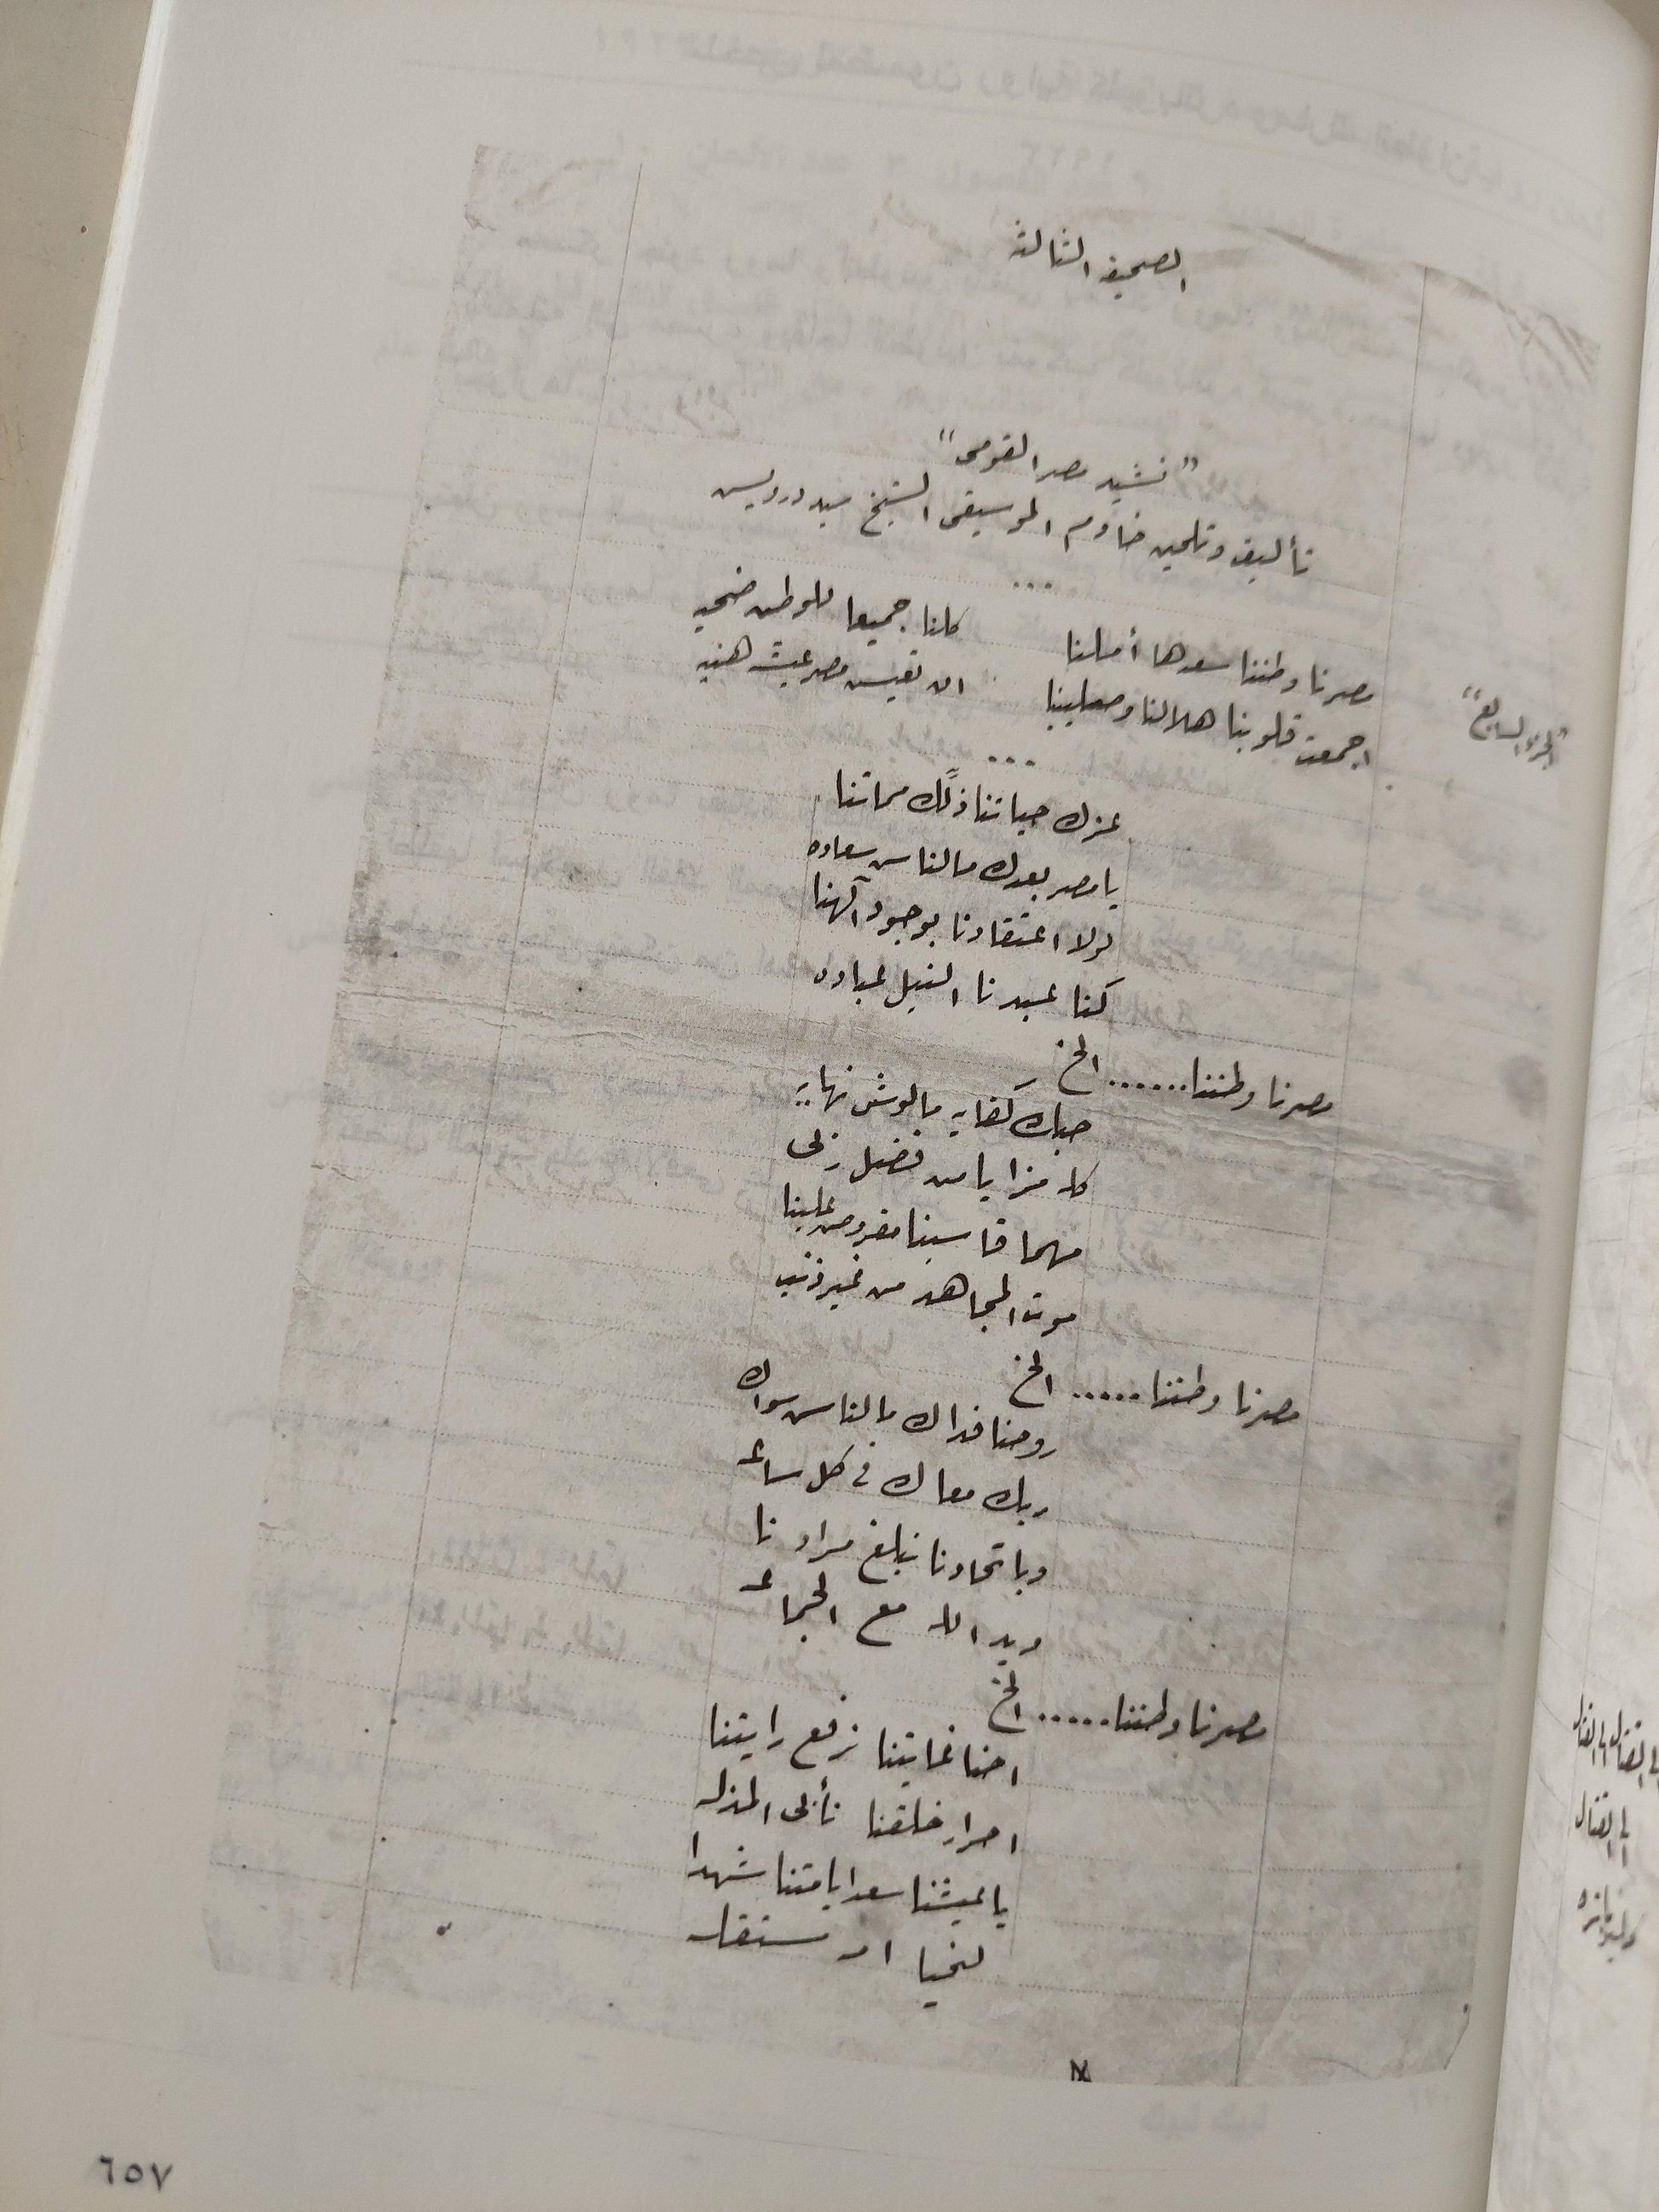 الصحيفه الثالثه
"نشيد مصر القومى"
تأليف وتلحين خادم الموسيقى الشيخ سيد درويش
...
"الجزء السابع"
مصرنا وطننا سعدها أملنا كلنا جميعا للوطن ضحيه
اجمعت قلوبنا هلالنا وصليبنا ان تعيش مصر عيشه هنيه
...
عزك حياتنا ذلك مماتنا
يا مصر بعدك مالناس سعاده
لولا اعتقادنا بوجود آلهنا
كنا عبدنا النيل عباده
مصرنا وطننا ...... الخ
حبك كفايه مالوش نهايه
كله مزايا من فضل ربى
مهما قاسينا مفروض علينا
موت المجاهد من غير ذنب
مصرنا وطننا ..... الخ
روحنا فداك مالناس سواك
ربك معاك فى كل ساعه
وباتحادنا نبلغ مرادنا
ويد الله مع الجماعه
مصرنا وطننا ..... الخ
احنا غايتنا نرفع رايتنا
احرار خلقنا نأبى المذله
يا عيشنا سعدا يا متنا شهدا
لنحيا امه مستقله
٦٥٧